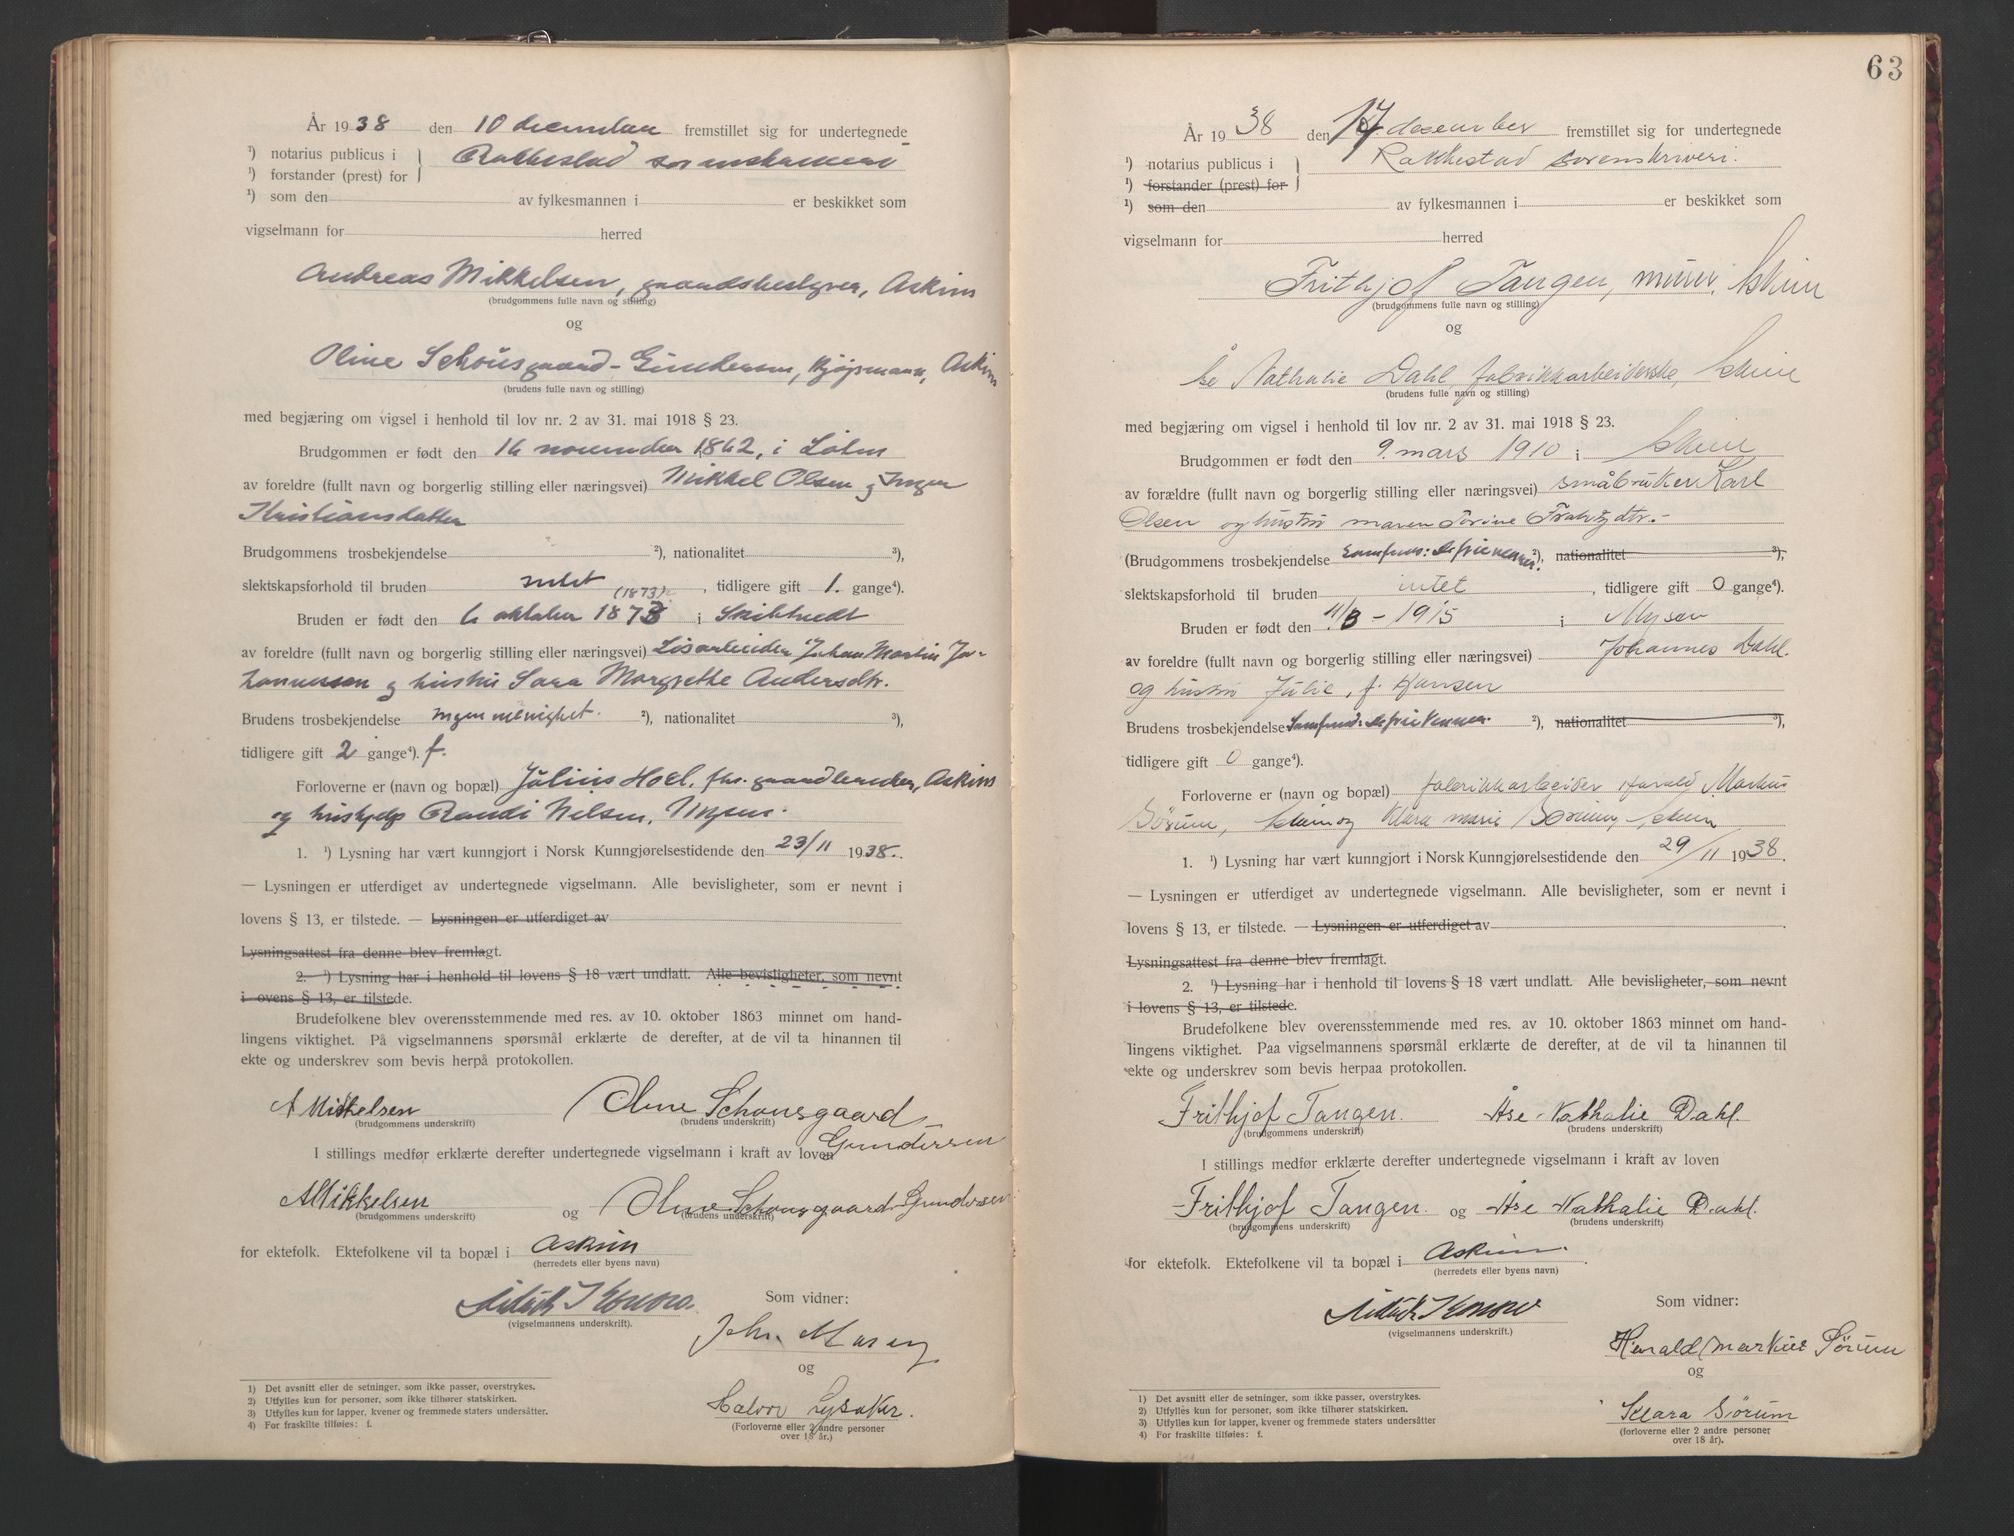 År 1938 den 10 december fremstillet sig for undertegnede
¹) notarius publicus i Rakkestad sorenskriveri
¹) forstander (prest) for
¹) som den av fylkesmannen i er beskikket som
vigselmann for herred
Andreas Mikkelsen, gaardsbestyrer, Askim
(brudgommens fulle navn og stilling)
og
Oline Schousgaard-Gundersen, kjøpmann, Askim
(brudens fulle navn og stilling)
med begjæring om vigsel i henhold til lov nr. 2 av 31. mai 1918 § 23.
Brudgommen er født den 16 november 1862, i
av foreldre (fullt navn og borgerlig stilling eller næringsvei) Mikkel Olsen og Inger
Kristiansdatter
Brudgommens trosbekjendelse ²), nationalitet ³),
slektskapsforhold til bruden intet , tidligere gift 1. gange⁴).
(1873)
Bruden er født den 6 oktober 1873 i Skiptvedt
av foreldre (fullt navn og borgerlig stilling eller næringsvei) Løsarbeider Johan Martin Jo-
hannessen og hustru Sara Margrethe Andersdtr.
Brudens trosbekjendelse Ingen menighet. ²), nationalitet ³),
tidligere gift 2 gange⁴). f.
Forloverne er (navn og bopæl) Julius Hoel, fhv. gaardbruker, Askim
og hushjelp Randi Nilsen, Mysen.
1. ¹) Lysning har vært kunngjort i Norsk Kunngjørelsestidende den 23/11 1938.
— Lysningen er utferdiget av undertegnede vigselmann. Alle bevisligheter, som er nevnt i
lovens § 13, er tilstede. — Lysningen er utferdiget av
Lysningsattest fra denne blev fremlagt.
2. ¹) Lysning har i henhold til lovens § 18 vært undlatt. Alle bevisligheter, som nevnt
i ovens § 13, er tilstede.
Brudefolkene blev overensstemmende med res. av 10. oktober 1863 minnet om hand-
lingens viktighet. På vigselmannens spørsmål erklærte de derefter, at de vil ta hinannen til
ekte og underskrev som bevis herpå protokollen.
A Mikkelsen Oline Schousgaard
(brudgommens underskrift) (brudens underskrift)
Gundersen
I stillings medfør erklærte derefter undertegnede vigselmann i kraft av loven
A Mikkelsen og Oline Schousgaard Gundersen
(brudgommens underskrift) (brudens underskrift)
for ektefolk. Ektefolkene vil ta bopæl i Askim
(herredets eller byens navn)
Som vidner:
(vigselmannens underskrift).
og
Halvor Lysaker.
(Forloverne eller 2 andre personer
over 18 år.)
1) Det avsnitt eller de setninger, som ikke passer, overstrykes.
2) Utfylles kun for personer, som ikke tilhører statskirken.
3) Utfylles kun for lapper, kvener og fremmede staters undersåtter.
4) For fraskilte tilføies: f.
63
År 1938 den 17. desember fremstillet sig for undertegnede
¹) notarius publicus i Rakkestad sorenskriveri.
¹) forstander (prest) for
¹) som den av fylkesmannen i er beskikket som
vigselmann for herred
Frithjof Tangen, murer, Askim
(brudgommens fulle navn og stilling)
og
Åse Nathalie Dahl, fabrikkarbeiderske, Askim
(brudens fulle navn og stilling)
med begjæring om vigsel i henhold til lov nr. 2 av 31. mai 1918 § 23.
Brudgommen er født den 9. mars 1910 i Askim
av forældre (fullt navn og borgerlig stilling eller næringsvei) småbruker Karl
Olsen og hustru Maren Torine
(Brudgommens trosbekjendelse Samfund: De frie venner ²), nationalitet ³),
slektskapsforhold til bruden intet , tidligere gift 0 gange⁴).
Bruden er født den 11/8 – 1915 i Mysen
av foreldre (fullt navn og borgerlig stilling eller næringsvei) Johannes Dahl
og hustru Julie, f. Hansen
Brudens trosbekjendelse Samfund: De frie Venner. ²), nationalitet ³),
tidligere gift 0 gange⁴).
Forloverne er (navn og bopæl) fabrikkarbeider Harald Markus
Sørum, Askim og Klara Marie Sørum, Askim
1. ¹) Lysning har vært kunngjort i Norsk Kunngjørelsestidende den 29/11 1938.
— Lysningen er utferdiget av undertegnede vigselmann. Alle bevisligheter, som er nevnt i
lovens § 13, er tilstede. — Lysningen er utferdiget av
Lysningsattest fra denne blev fremlagt.
2. ¹) Lysning har i henhold til lovens § 18 vært undlatt. Alle bevisligheter, som nevnt
i lovens § 13, er tilstede.
Brudefolkene blev overensstemmende med res. av 10. oktober 1863 minnet om hand-
lingens viktighet. Paa vigselmannens spørsmål erklærte de derefter, at de vil ta hinannen til
ekte og underskrev som bevis herpaa protokollen.
Frithjof Tangen. Åse Nathalie Dahl.
(brudgommens underskrift) (brudens underskrift)
I stillings medfør erklærte derefter undertegnede vigselmann i kraft av loven
Frithjof Tangen. og Åse Nathalie Dahl.
(brudgommens underskrift) (brudens underskrift)
for ektefolk. Ektefolkene vil ta bopæl i Askim.
(herredets eller byens navn)
Som vidner:
(vigselmannens underskrift.)
Harald Markus Sørum
og
Klara Sørum
(forloverne eller 2 andre personer
over 18 år).
1) Det avsnitt eller de setninger, som ikke passer, overstrykes.
2) Utfylles kun for personer, som ikke tilhører statskirken.
3) Utfylles kun for lapper, kvener og fremmede staters undersåtter
4) For fraskilte tilføies: f.